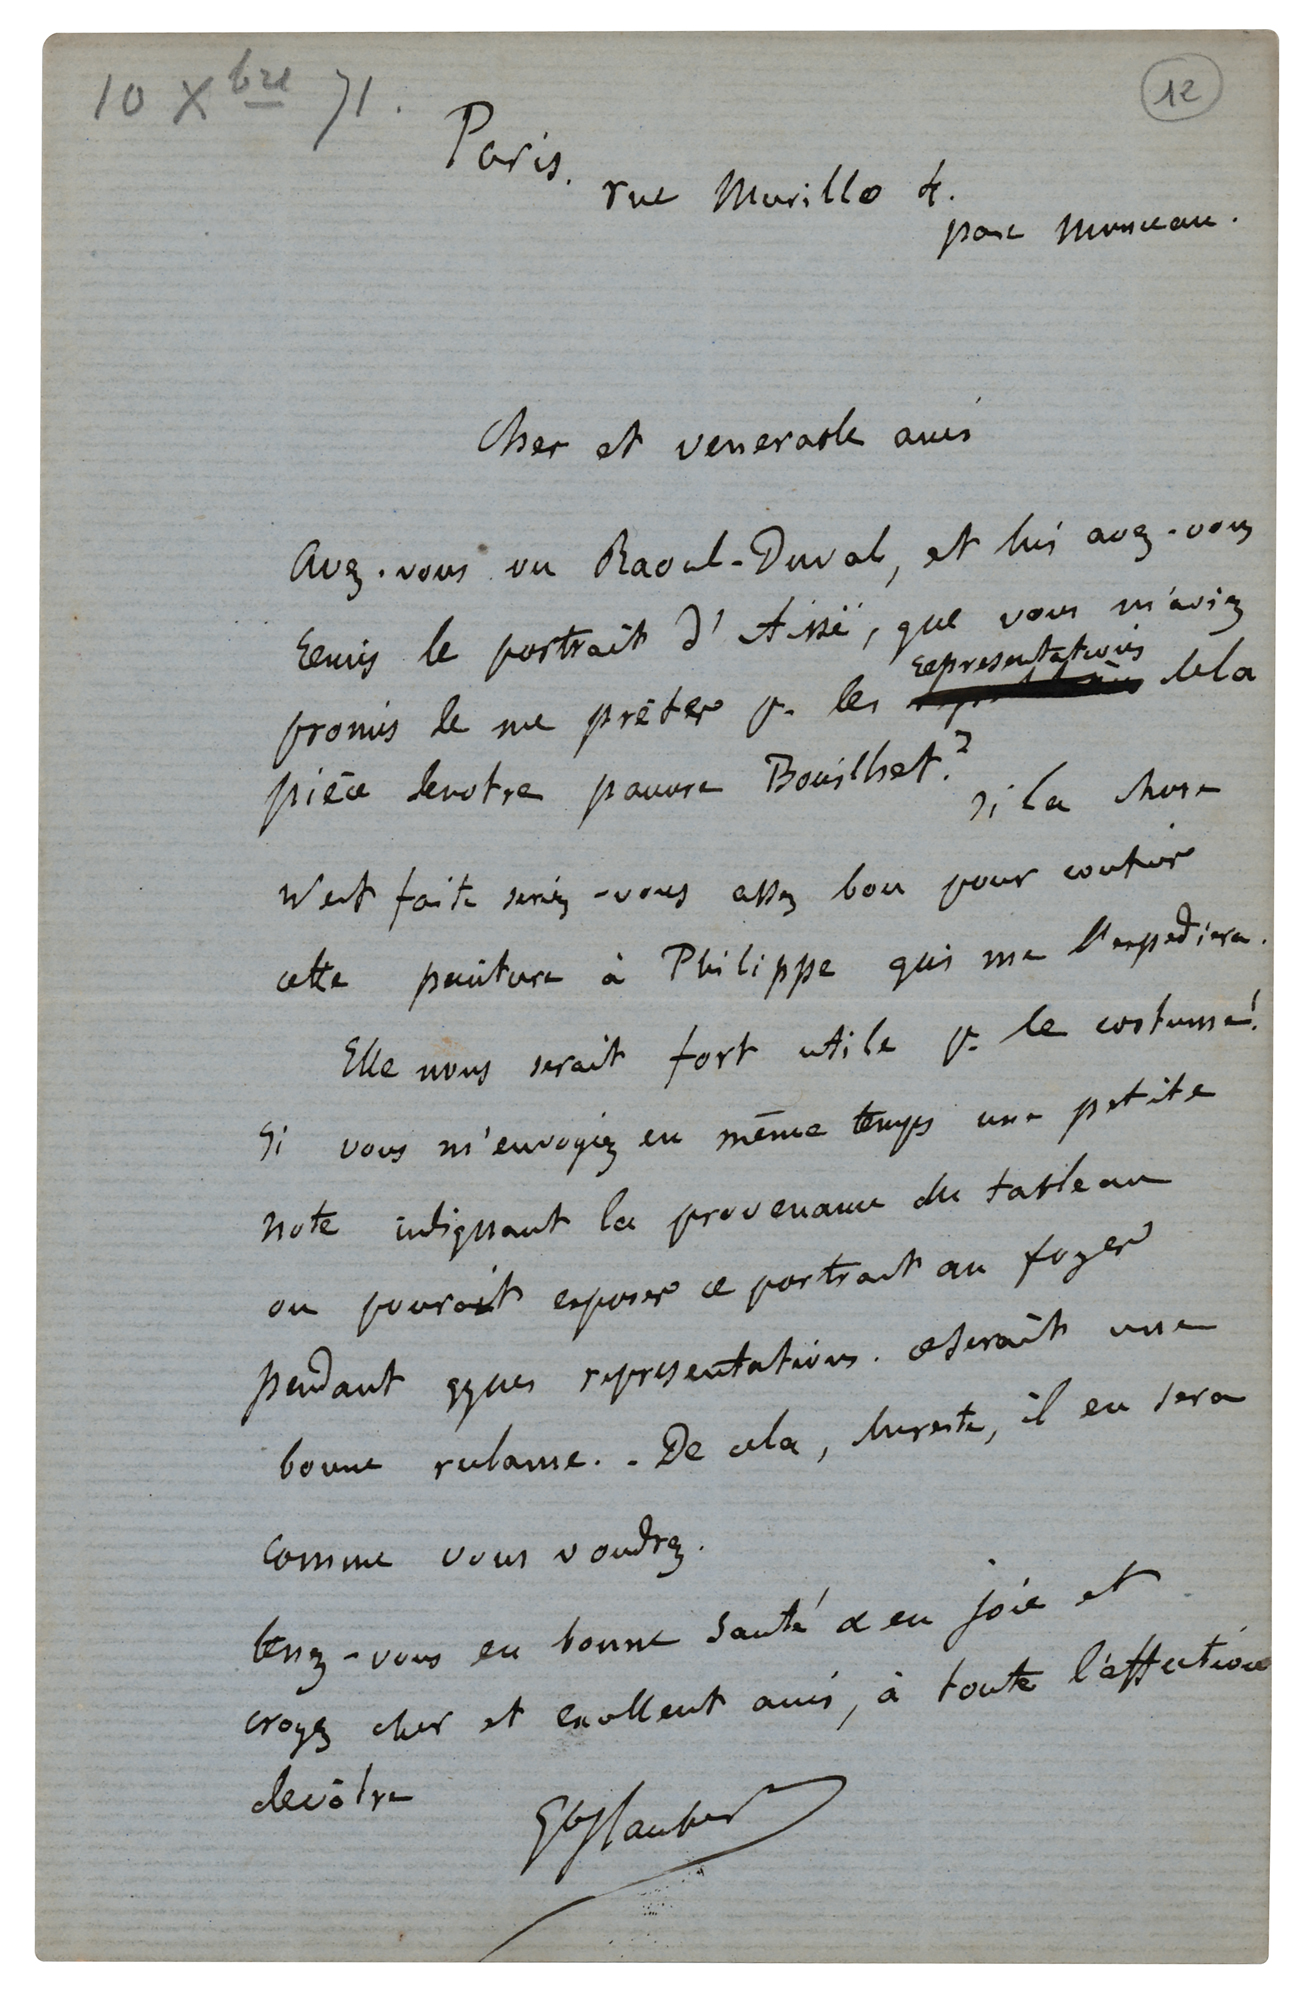 10 Xbre 71.
12
Paris.
rue Murillo 4.
parc Monceau.
Cher et venerable ami
Avez-vous vu Raoul-Duval, et lui avez-vous
remis le portrait d'Aïssé, que vous m'aviez
representations
promis de me prêter pr. les dela
pièce denotre pauvre Bouilhet? si la chose
n'est faite seriez-vous assez bon pour confier
cette peinture à Philippe qui me l'expediera.
Elle nous serait fort utile pr. le costume!
Si vous m'envoyiez en même temps une petite
note indignant la provenance du tableau
on pourait exposer ce portrait au foyer
pendant qques representations. ceserait une
bonne reclame. - De cela, dureste, il en sera
comme vous voudrez.
tenez-vous en bonne santé & en joie et
croyez cher et excellent ami, à toute l'affection
devôtre
Gve Flaubert